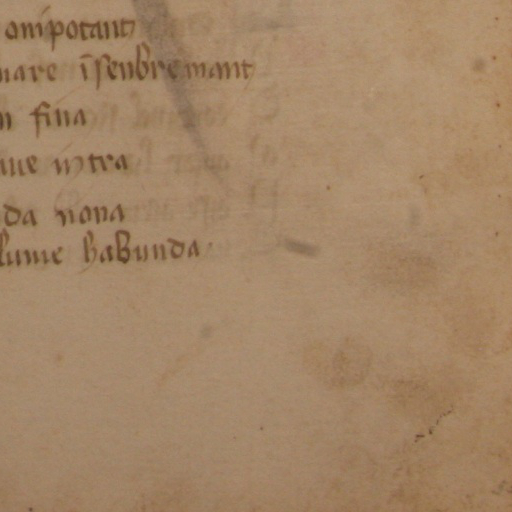 onipotant
nare īsenbremant
n fina
iue intra
da nona
lume habunda